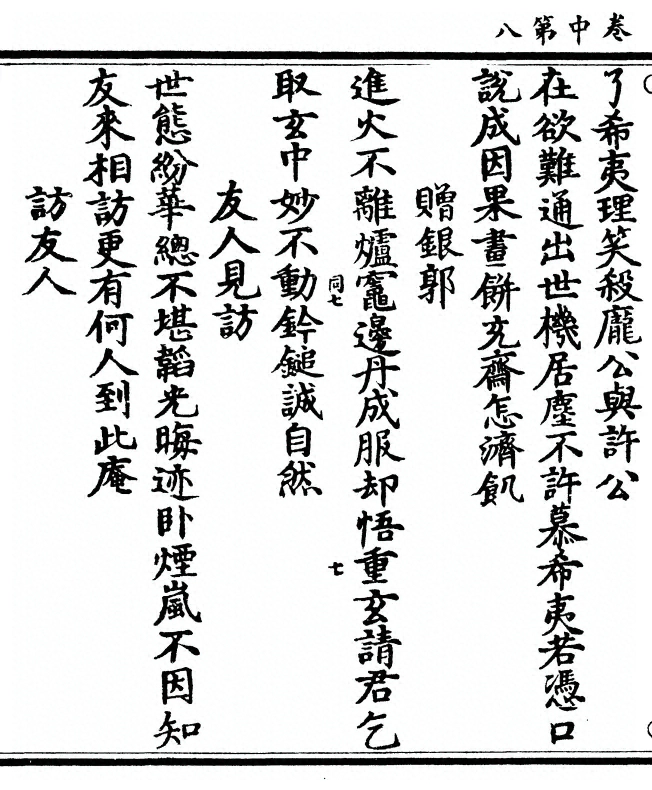 卷中第八
了希夷理笑殺龐公與許公
在欲難通出世機居塵不許慕希夷若憑口
說成因果畫餅充齋怎濟飢
贈銀郭
進火不離爐竈邊丹成服却悟重玄請君乞
取玄中妙不動鈐鎚誠自然
同七
七
友人見訪
世態紛華總不堪韜光晦迹卧煙嵐不因知
友來相訪更有何人到此庵
訪友人